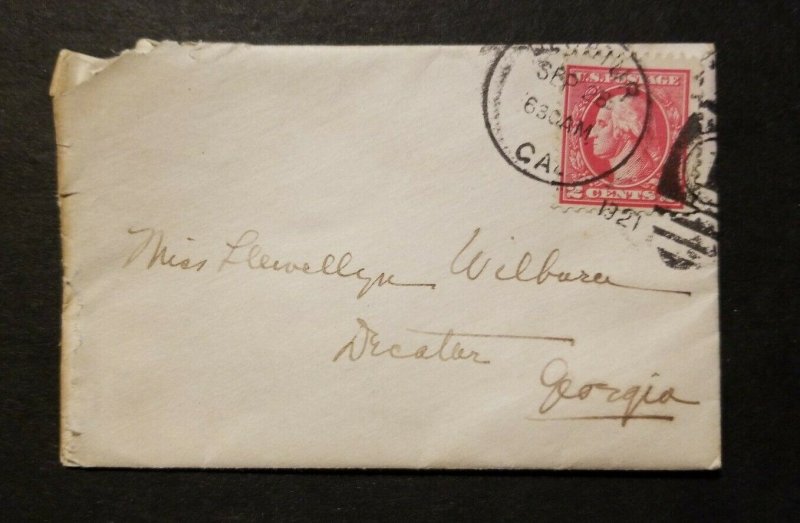 SEP 28
630AM
CAL
1921
U.S. POSTAGE
2 CENTS 2
Miss Llewellyn Wilburn
Decater
Georgia